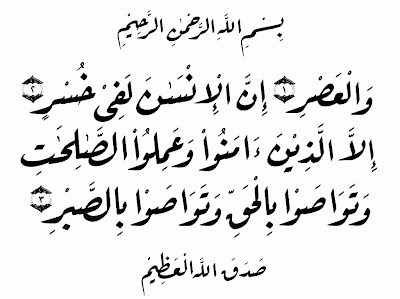 بِسْمِ اللَّهِ الرَّحْمَٰنِ الرَّحِيْمِ
وَالْعَصْرِ ۝١ إِنَّ الْإِنْسَٰنَ لَفِىْ خُسْرٍ ۝٢
إِلاَّ الَّذِيْنَ ءَامَنُواْ وَعَمِلُواْ الصَّٰلِحَٰتِ
وَتَوَاصَوْا بِالْحَقِّ وَتَوَاصَوْا بِالصَّبْرِ ۝٣
صَدَقَ اللهُ الْعَظِيْمِ